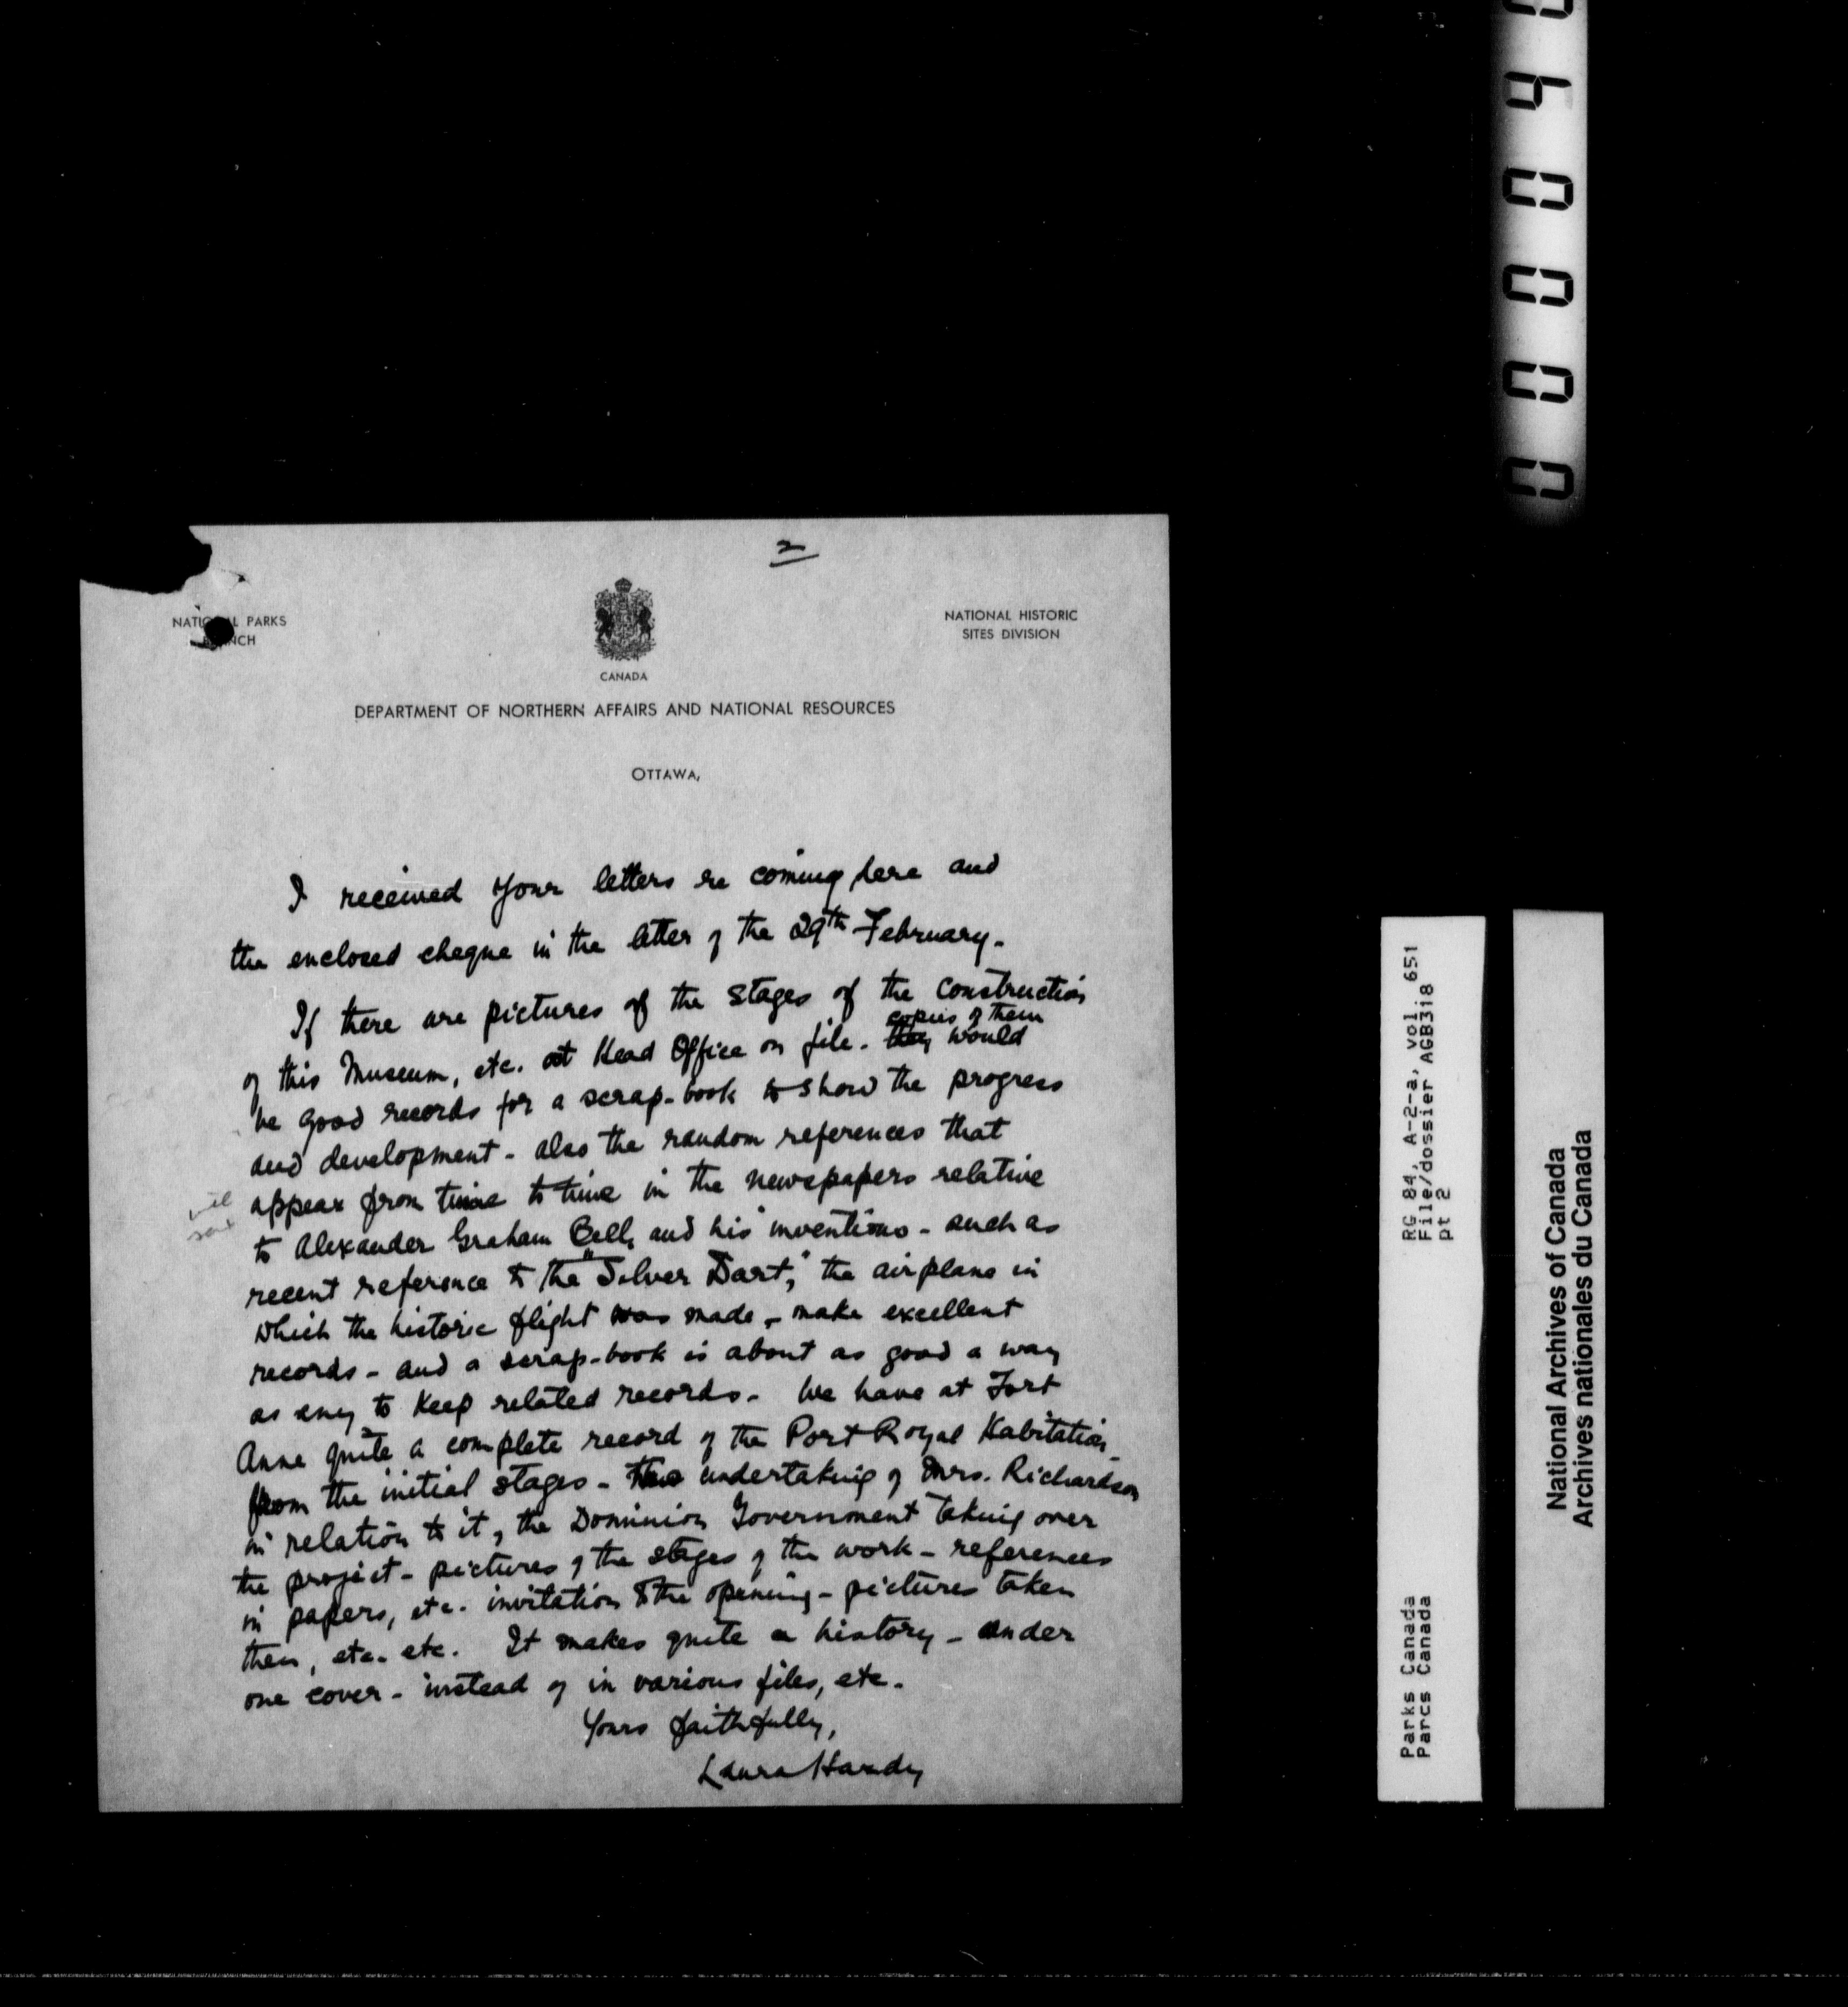 2
NATIONAL PARKS
BRANCH
NATIONAL HISTORIC
SITES DIVISION
CANADA
DEPARTMENT OF NORTHERN AFFAIRS AND NATIONAL RESOURCES
OTTAWA,
I received your letters re coming here and
the enclosed cheque in the letter of the 29th February.
If there are pictures of the stages of the construction
of this Museum, etc. at Head Office on file. they would
copies of them
be good records for a scrap-book to show the progress
and development - also the random references that
appear from time to time in the newspapers relative
to Alexander Graham Bell, and his inventions - such as
recent reference to the "Silver Dart," the airplane in
which the historic flight was made, - make excellent
records - and a scrap-book is about as good a way
as any to keep related records. We have at Fort
Anne quite a complete record of the Port Royal Habitation
from the initial stages - the undertaking of Mrs. Richardson
in relation to it, the Dominion Government taking over
the project - pictures of the stages of the work - references
in papers, etc. invitation to the opening - pictures taken
then, etc. etc. It makes quite a history - under
one cover - instead of in various files, etc.
Yours faithfully,
Laura Hardy
RG 84, A-2-a, vol. 651
File/dossier AGB318
pt 2
Parks Canada
Parcs Canada
National Archives of Canada
Archives nationales du Canada